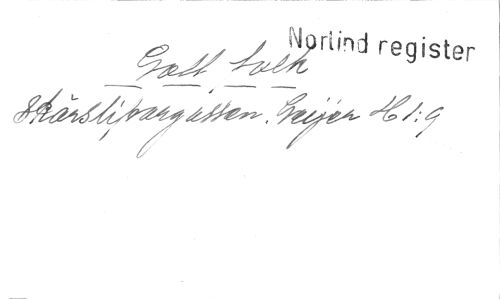 Norlind register
Godt folk
Skärslipargubben. Geijer H 1:9